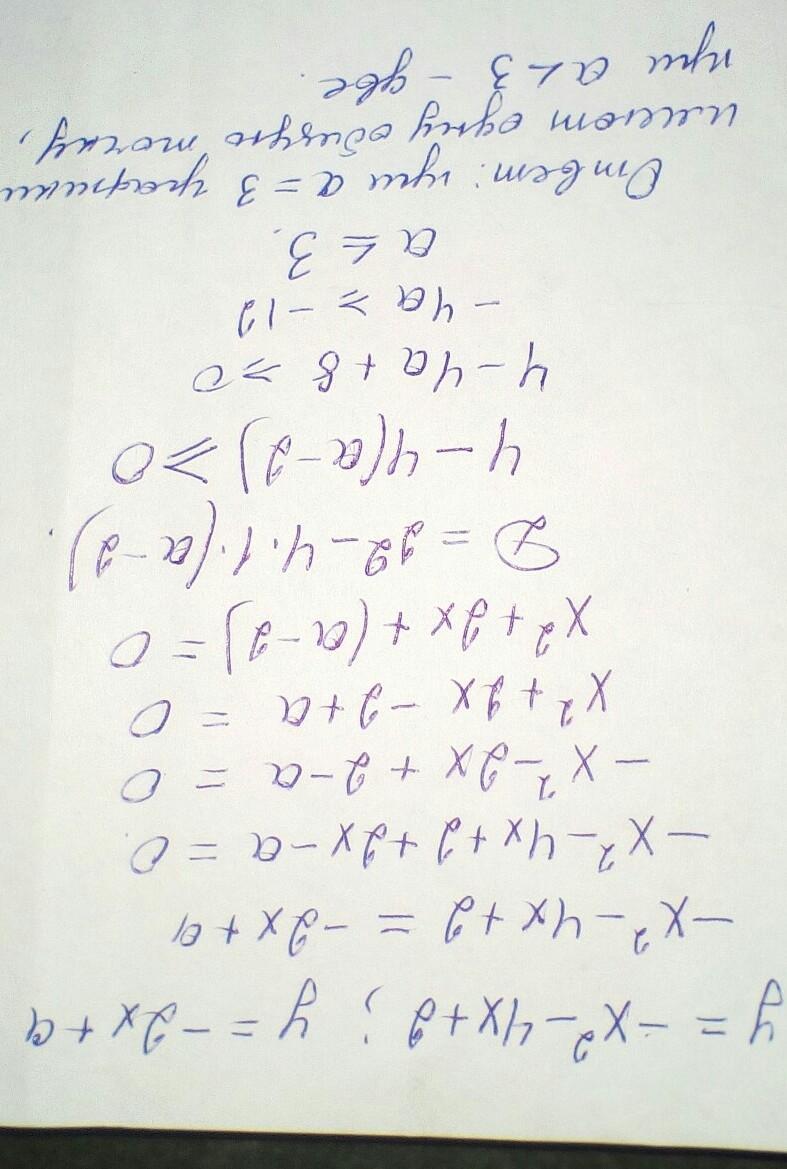 y = -x² - 4x + 2 ; y = -2x + a
-x² - 4x + 2 = -2x + a
-x² - 4x + 2 + 2x - a = 0
-x² - 2x + 2 - a = 0
x² + 2x - 2 + a = 0
x² + 2x + (a - 2) = 0
D = 2² - 4 · 1 · (a - 2).
4 - 4(a - 2) ⩾ 0
4 - 4a + 8 ⩾ 0
-4a ⩾ -12
a ⩽ 3.
Ответ: при a = 3 графики
имеют одну общую точку,
при a < 3 - две.